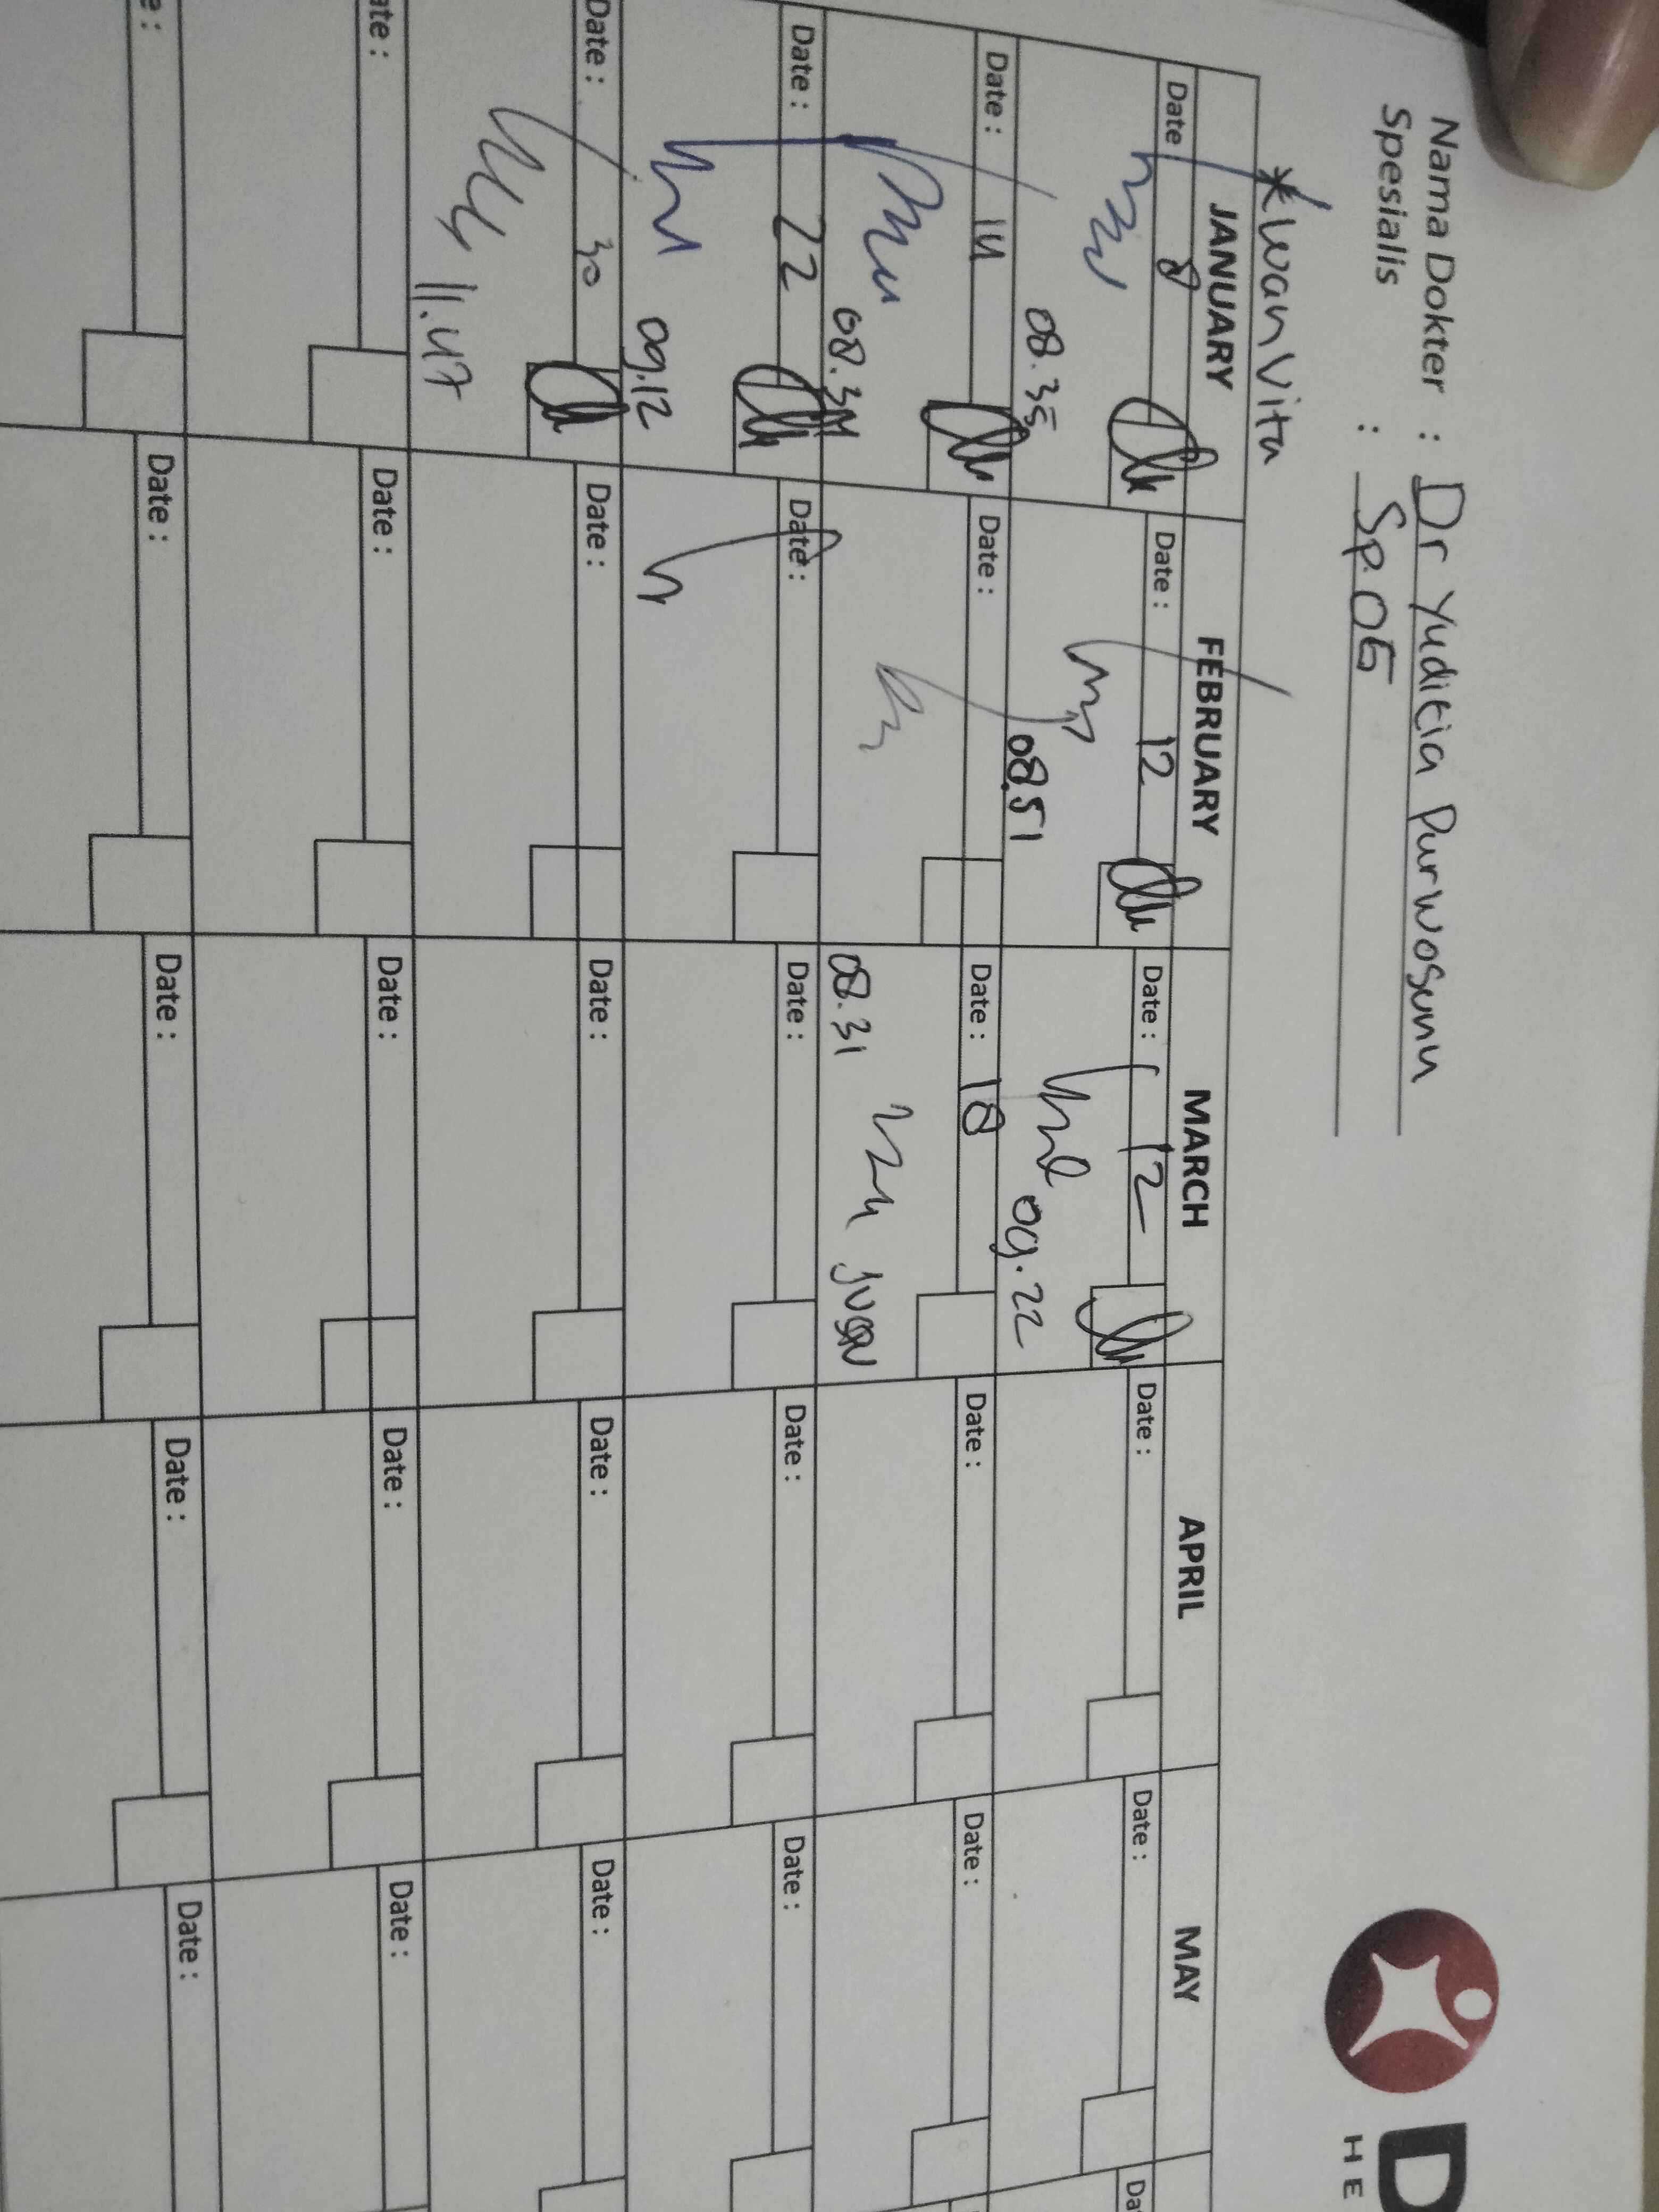 Nama Dokter : Dr Yuditia Purwosunu
Spesialis : Sp.OG
D
HE
*Iwan Vita
JANUARY FEBRUARY MARCH APRIL MAY
Date 8 Date : 12 Date : 12 Date : Date : Da
08.35 08.51 09.22
Date : 14 Date : Date : 18 Date : Date :
08.31
Date : 22 Date : Date : Date : Date :
09.12
Date : 30 Date : Date : Date : Date :
11.47
ate : Date : Date : Date : Date :
e : Date : Date : Date : Date :